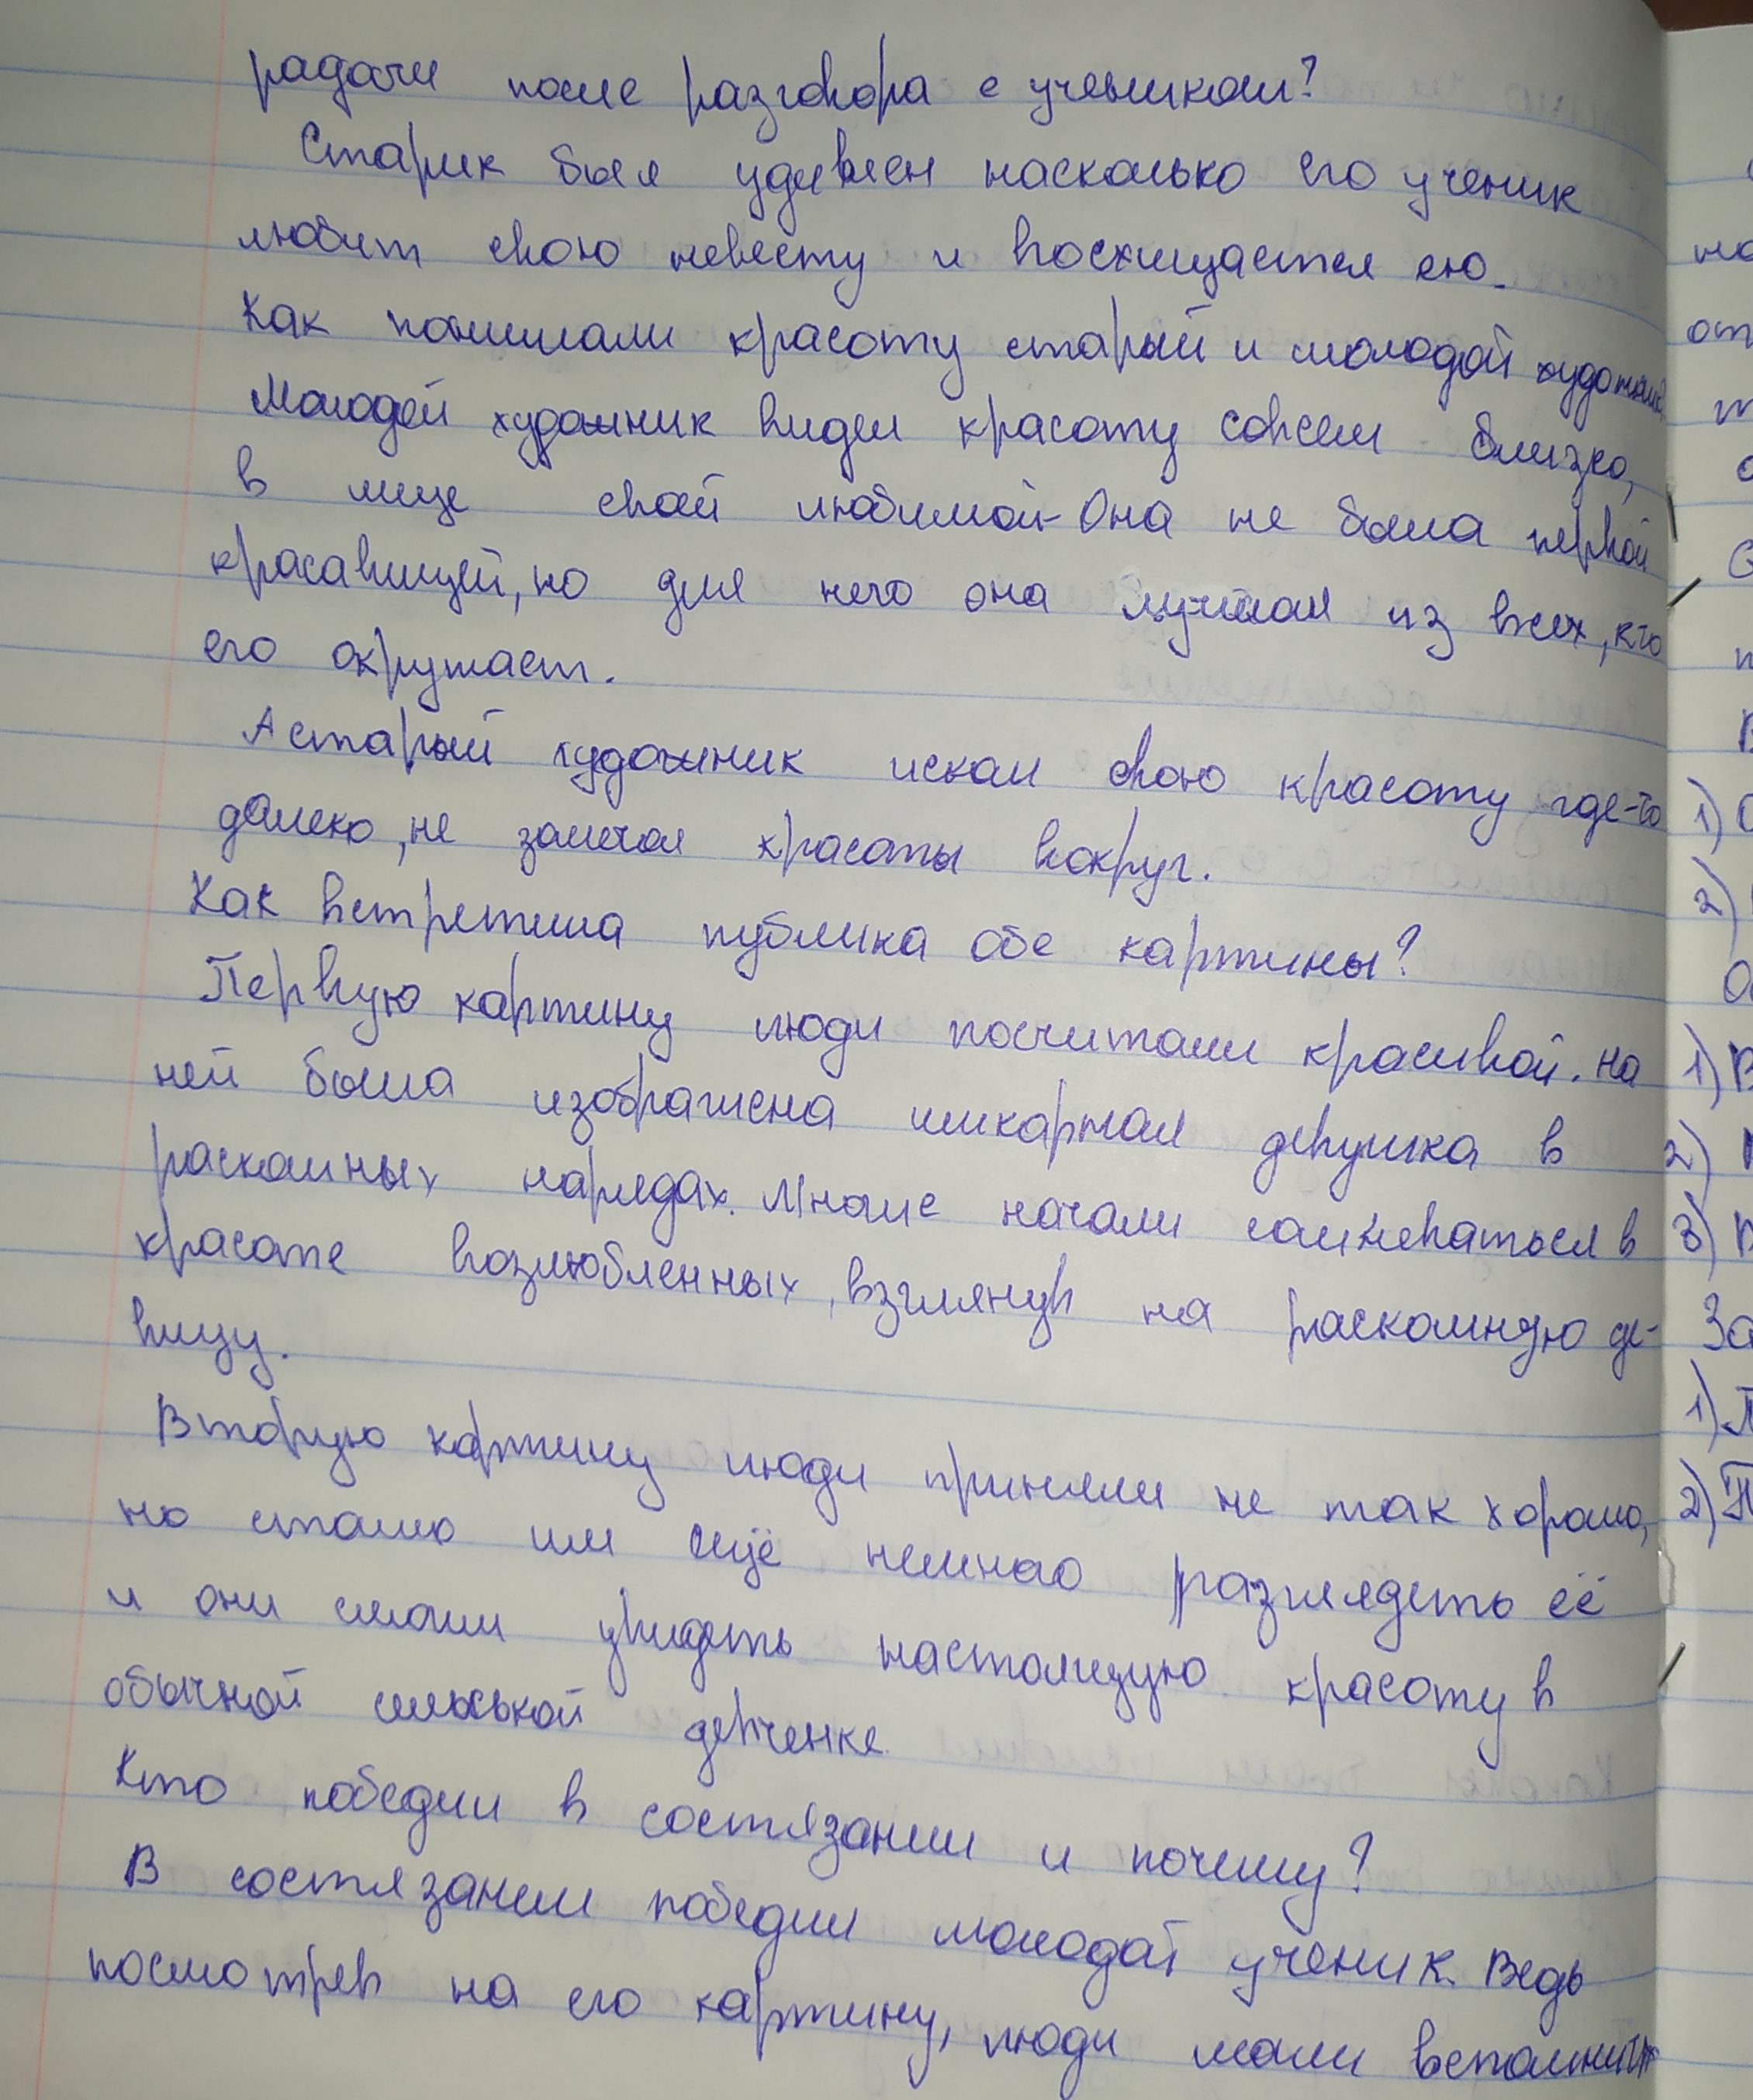 радачи после разговора с учеником?
Старик был удивлен насколько его ученик
любит свою невесту и восхищается ею.
Как понимали красоту старый и молодой художник
Молодой художник видел красоту совсем близко,
в лице своей любимой. Она не была первой
красавицей, но для него она лучшая из всех, кто
его окружает.
А старый художник искал свою красоту где-то
далеко, не замечая красоты вокруг.
Как встретила публика обе картины?
Первую картину люди посчитали красивой. На
ней была изображена шикарная девушка в
роскошных нарядах. Многие начали сомневаться в
красоте возлюбленных, взглянув на роскошную де-
вицу.
Вторую картину люди приняли не так хорошо,
но стоило им ещё немного разглядеть её
и они смогли увидеть настоящую красоту в
обычной сельской девченке.
Кто победил в состязании и почему?
В состязании победил молодой ученик. Ведь
посмотрев на его картину, люди могли вспомнить
но
от
1)
2)
1) В
2)
3) В
За
1) П
2) П